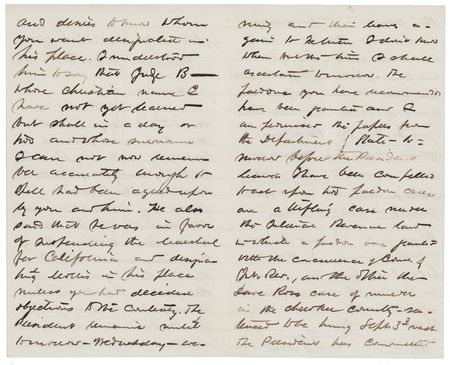 and desires to know whom
you want designated in
his place. I understood
him to say that Judge B—
whose christian name I
have not yet learned
but shall in a day or
two and whose surname
I can not now remem
ber accurately enough to
spell had been agreed upon
by you and him. He also
said that he was in favor
of suspending the Marshal
for California and designa
ting in his place
unless you had decided
objections to the contrary. The
President remains until
tomorrow—Wednesday—eve-
ning and then leaves a-
gain to I don't know
when but this I shall
ascertain tomorrow. The
pardons you have recommended
have been granted and I
am promised the papers from
the Department of State to-
morrow before the President
leaves. I have been compelled
to act upon two pardon cases
one a trifling case under
the Internal Revenue laws
in which a pardon was granted
with the concurrence of Com. of
Int. Rev., and the other the
Dave Ross case of murder
in the Cherokee Country—sen-
tenced to be hung Sept 3d next
The President has commuted